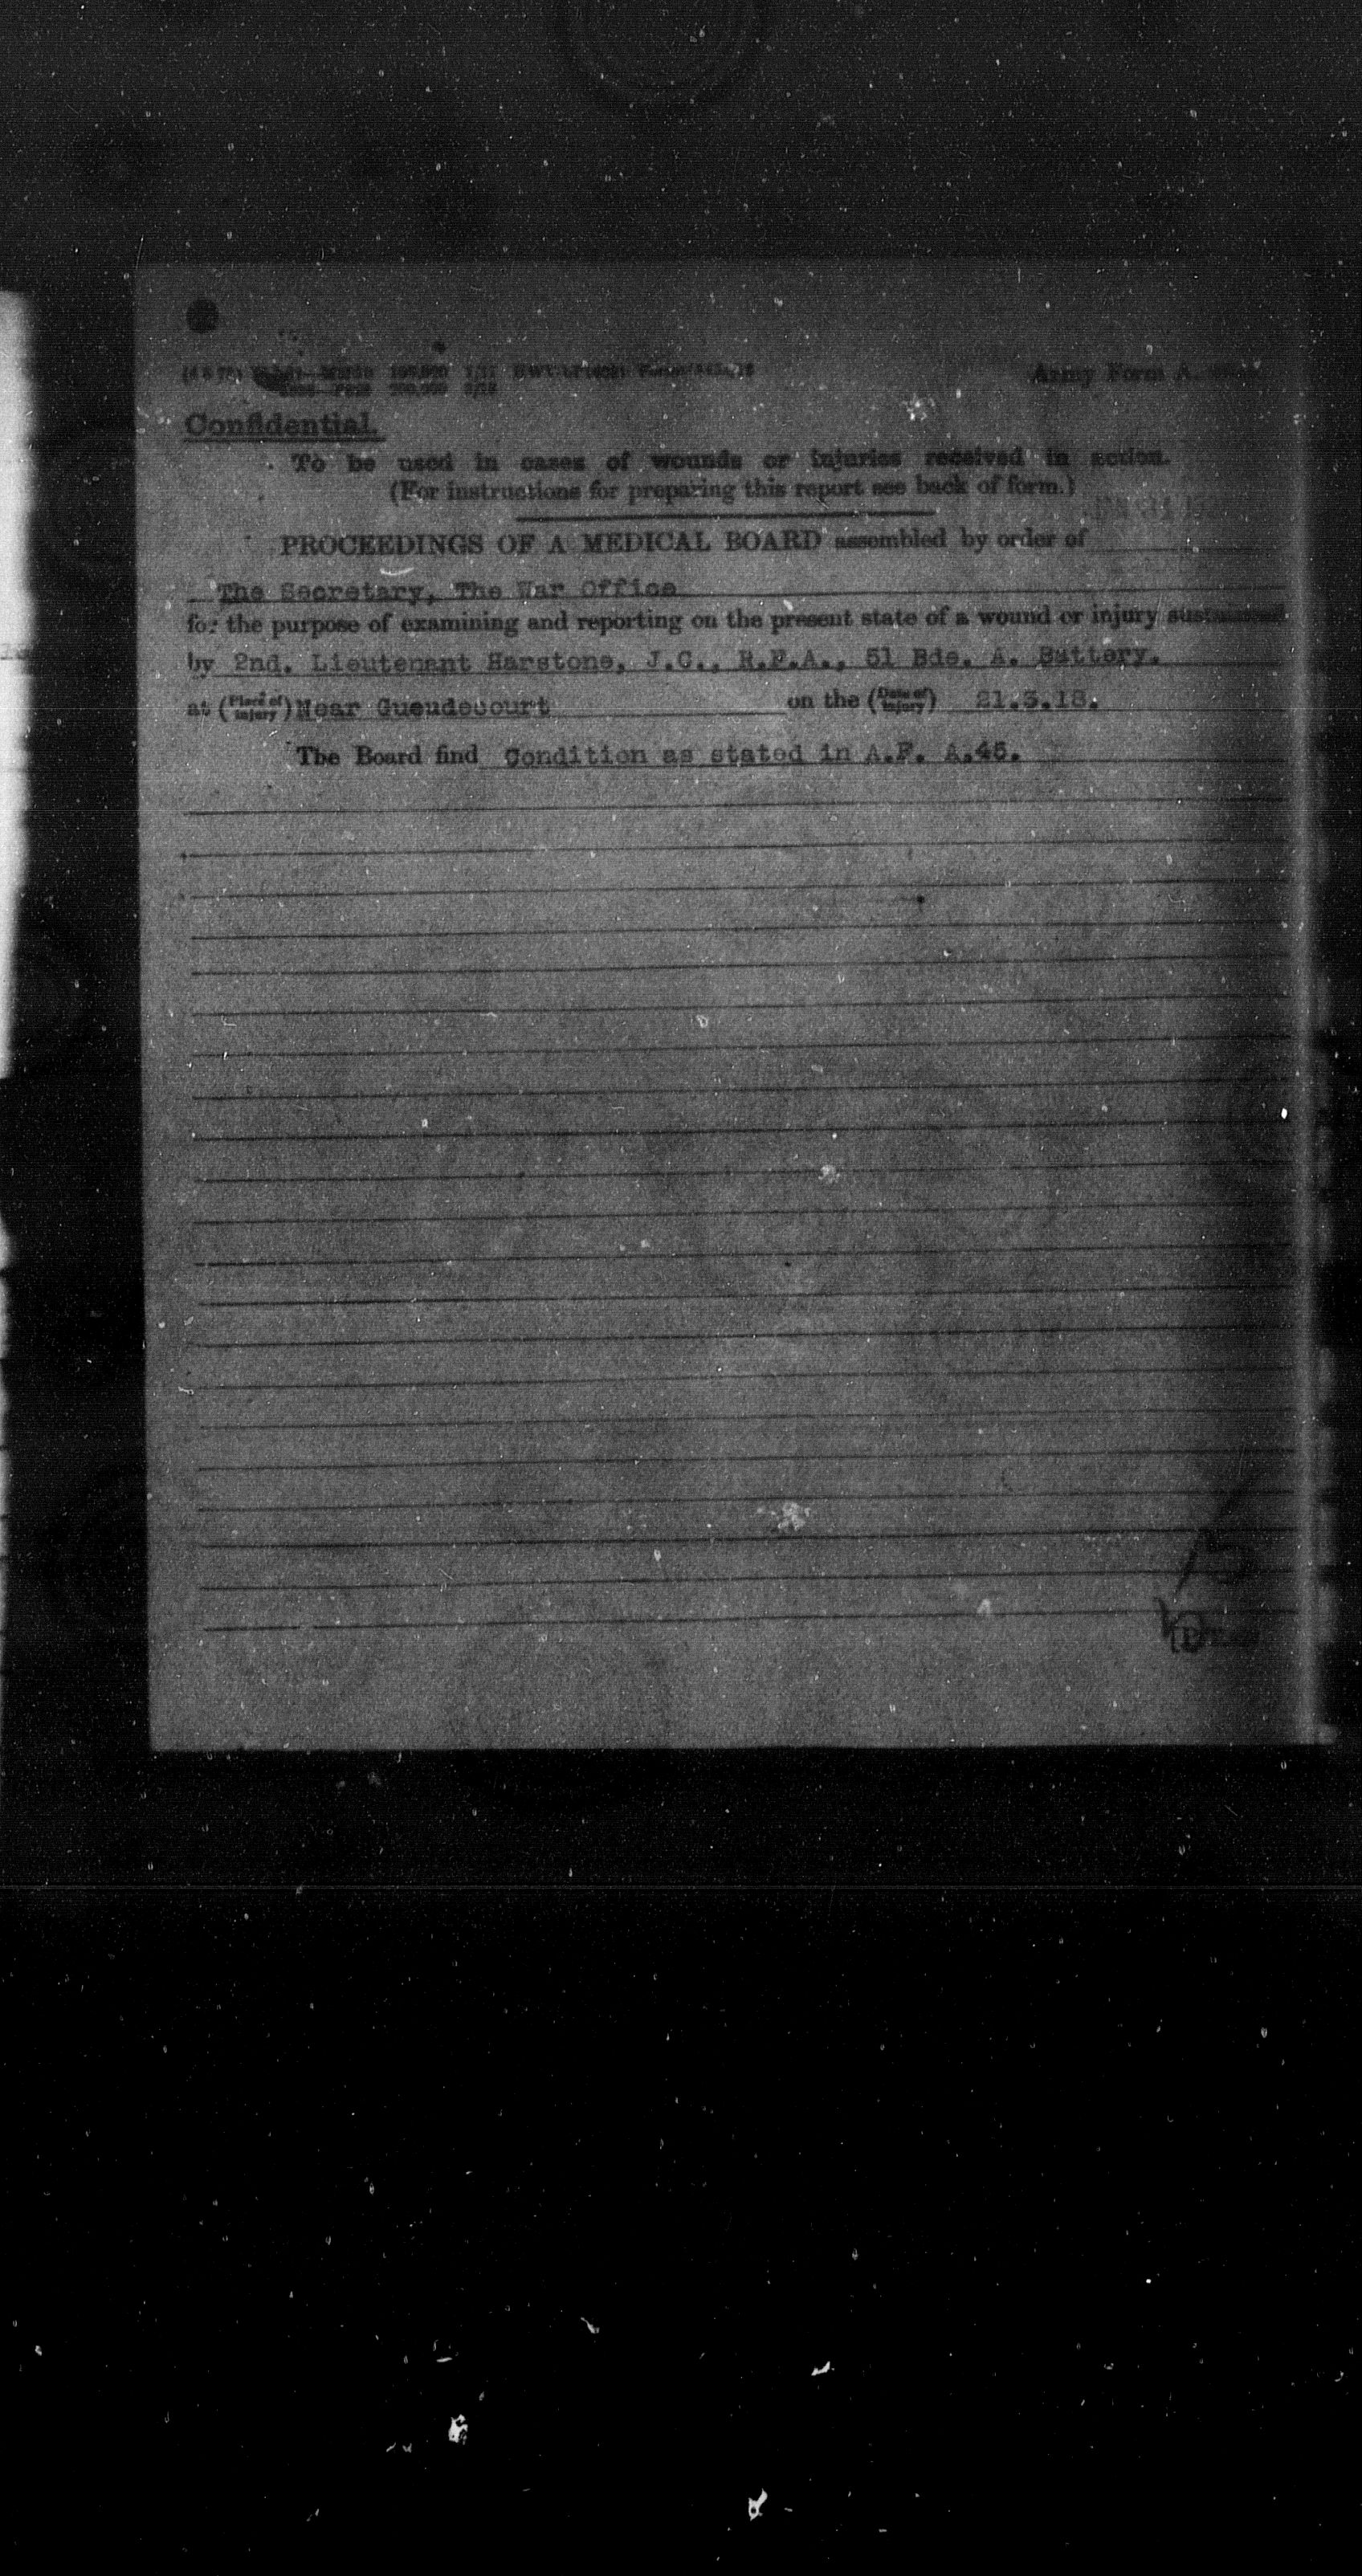 Army Form A.
Confidential.
To be used in cases of wounds or injuries received in action.
(For instructions for preparing this report see back of form.)
PROCEEDINGS OF A MEDICAL BOARD assembled by order of
The Secretary, The War Office
for the purpose of examining and reporting on the present state of a wound or injury sustained
by 2nd. Lieutenant Harstone, J.C., R.F.A., 51 Bde. A. Battery.
at (Place of injury) Near Gueudecourt on the (Date of injury) 21.3.18.
The Board find Condition as stated in A.F. A.45.